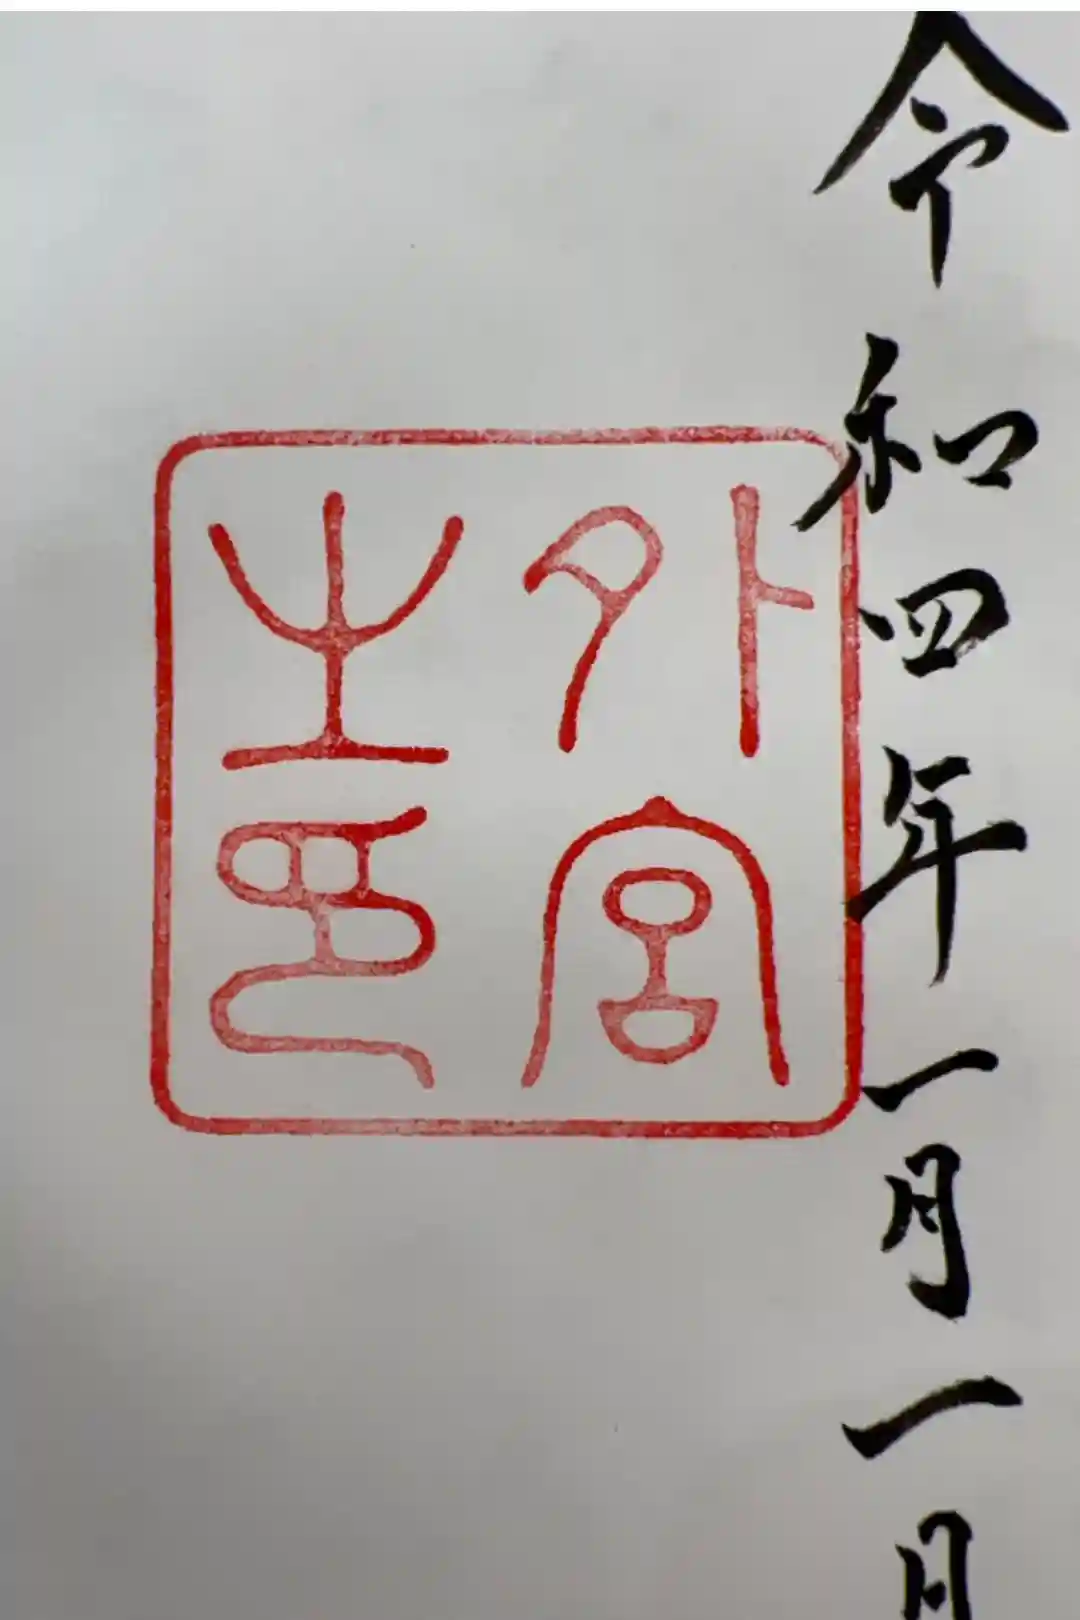 令和四年一月一日
外宮之印